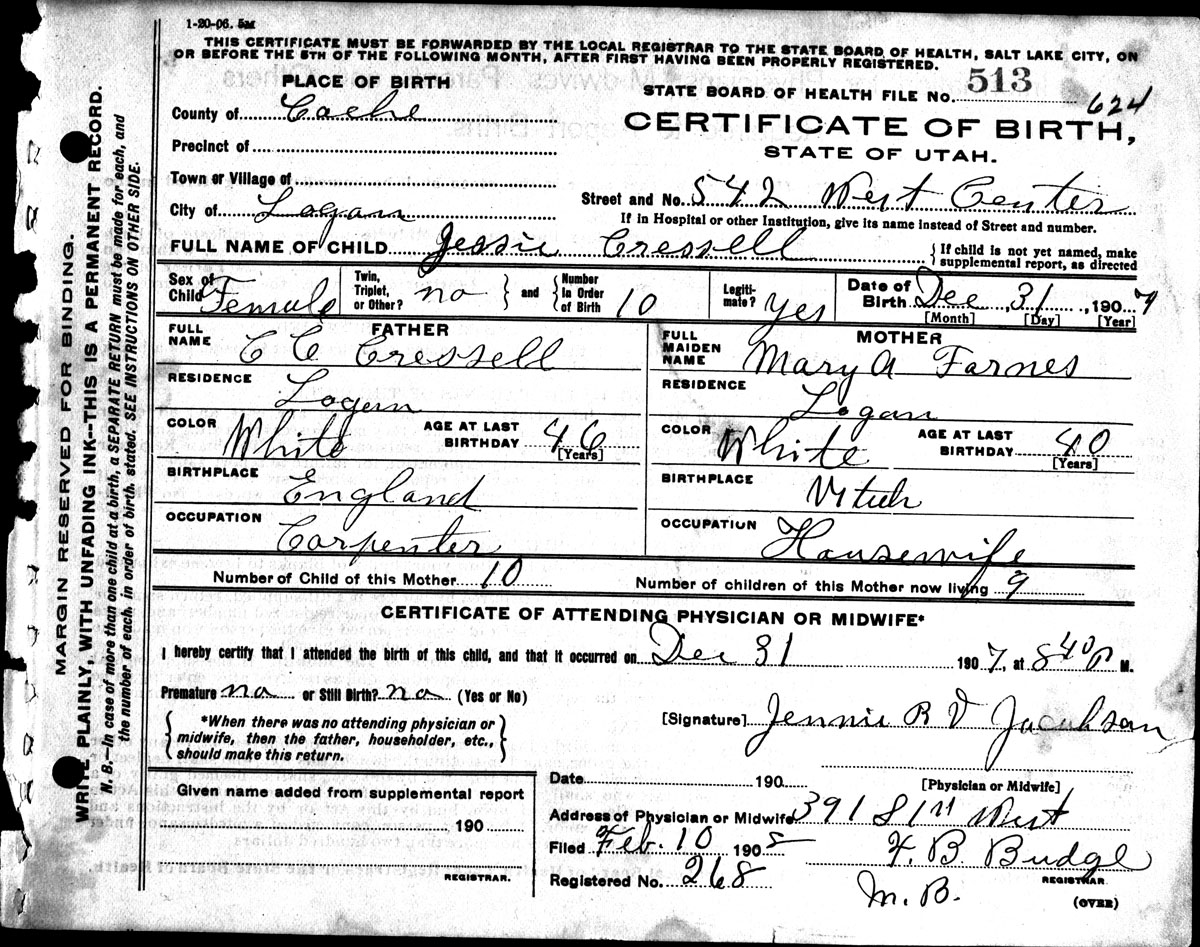 1-20-06.
THIS CERTIFICATE MUST BE FORWARDED BY THE LOCAL REGISTRAR TO THE STATE BOARD OF HEALTH, SALT LAKE CITY, ON
OR BEFORE THE 5TH OF THE FOLLOWING MONTH, AFTER FIRST HAVING BEEN PROPERLY REGISTERED.
PLACE OF BIRTH
STATE BOARD OF HEALTH FILE NO. 513 624
County of Cache
CERTIFICATE OF BIRTH,
STATE OF UTAH.
Precinct of
Town or Village of
Street and No. 542 West Center
City of Logan
If in Hospital or other Institution, give its name instead of Street and number.
FULL NAME OF CHILD Jessie Cressell
{If child is not yet named, make
supplemental report, as directed
Sex of Child Female
Twin, Triplet, or Other? no } and { Number In Order of Birth 10
Legiti-mate? yes
Date of Birth Dec 31, 1907
[Month] [Day] [Year]
FATHER
FULL NAME C C Cressell
RESIDENCE Logan
COLOR White AGE AT LAST BIRTHDAY 46
[Years]
BIRTHPLACE England
OCCUPATION Carpenter
MOTHER
FULL MAIDEN NAME Mary A Farnes
RESIDENCE Logan
COLOR White AGE AT LAST BIRTHDAY 40
[Years]
BIRTHPLACE Utah
OCCUPATION Housewife
Number of Child of this Mother 10 Number of children of this Mother now living 9
CERTIFICATE OF ATTENDING PHYSICIAN OR MIDWIFE*
I hereby certify that I attended the birth of this child, and that it occurred on Dec 31 1907, at 8 40 P M.
Premature no or Still Birth? no (Yes or No)
{ *When there was no attending physician or
midwife, then the father, householder, etc.,
should make this return. }
[Signature] Jennie R V Jacobson
Date 190
[Physician or Midwife]
Given name added from supplemental report
190
REGISTRAR.
Address of Physician or Midwife 391 S 1st West
Filed Feb. 10 1908 F. B. Budge
Registered No. 268 M. B. REGISTRAR
(OVER)
MARGIN RESERVED FOR BINDING.
WRITE PLAINLY, WITH UNFADING INK--THIS IS A PERMANENT RECORD.
N. B.--In case of more than one child at a birth, a SEPARATE RETURN must be made for each, and
the number of each, in order of birth, stated. SEE INSTRUCTIONS ON OTHER SIDE.